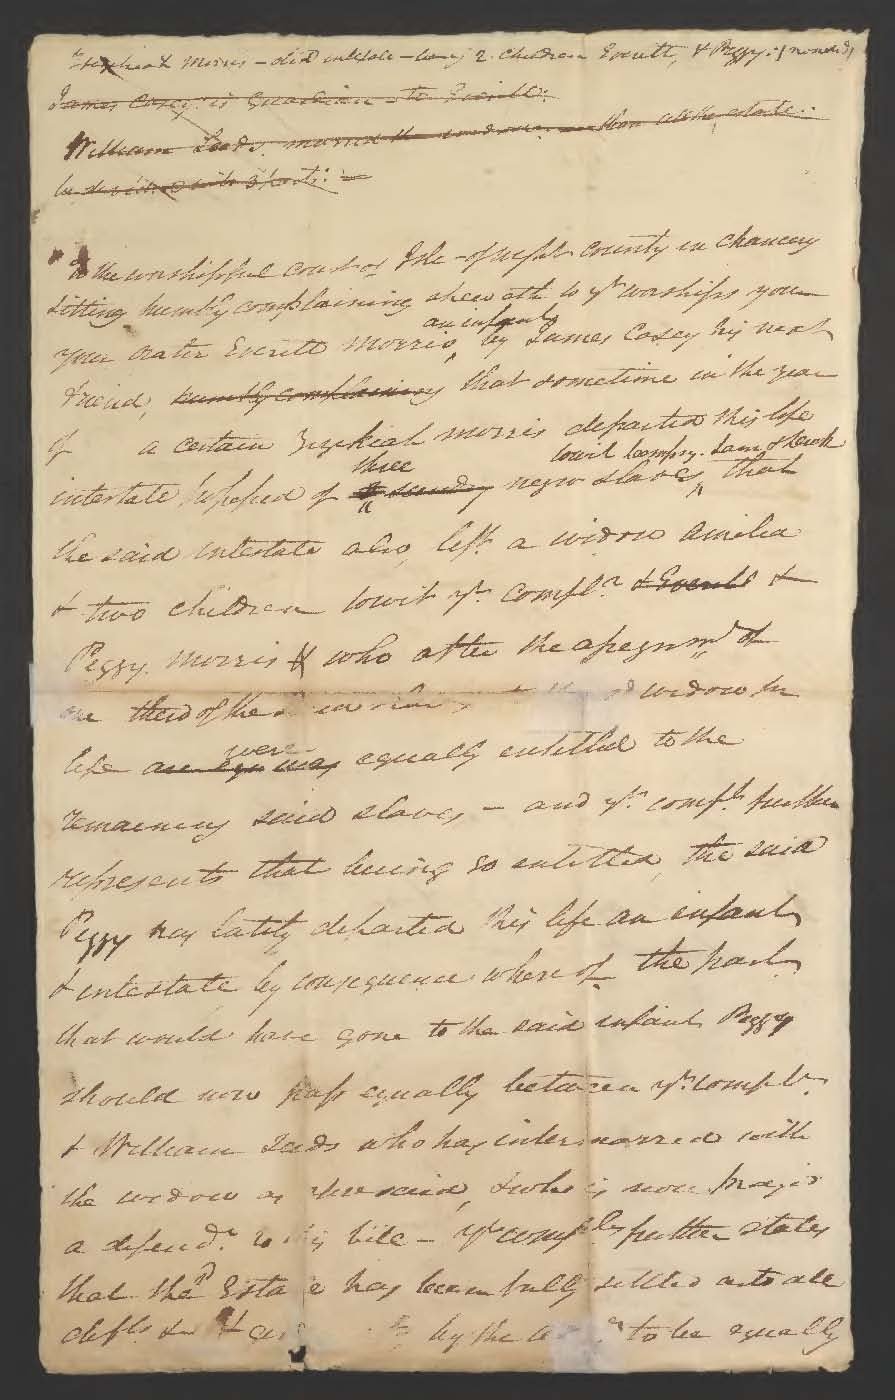 Hezekiah Morris - died intestate - leavg 2. Children Everitt, & Peggy.
James Casey is Guardian to Everitt:
William Leeds. married the widow than all the estate.
be devided into 3 parts: =
To the worshipful court of Isle-of wight County in Chancery
Sitting humbly complaining sheweth to yr. worships your
your orator Everitt Morris, an infant by James Casey his next
Friend, humbly complaining that sometime in the year
of a certain Hezekiah Morris departed this life
intestate possessed of sundry three negro slaves, towit Sam that
the said intestate also, left a widow Amelia
& two children towit yr. Complt. & Everitt &
Peggy. Morris & who after the assegnmt. of
one third of the widow for
life were equally entitled to the
remaining said slaves - and yr. complt. further
represents that being so entitled, the said
Peggy has lately departed this life an infant
& intestate, by consequence where of the part
that would have gone to the said infant Peggy
should now pass equally between yr. complt.
& William Leeds who has intermarried with
the widow as aforesaid, & who is now prayed
a defendt. to this bill - yr complts further states
that the sd Estate has been fully settled as to all
debts & by the to be equally